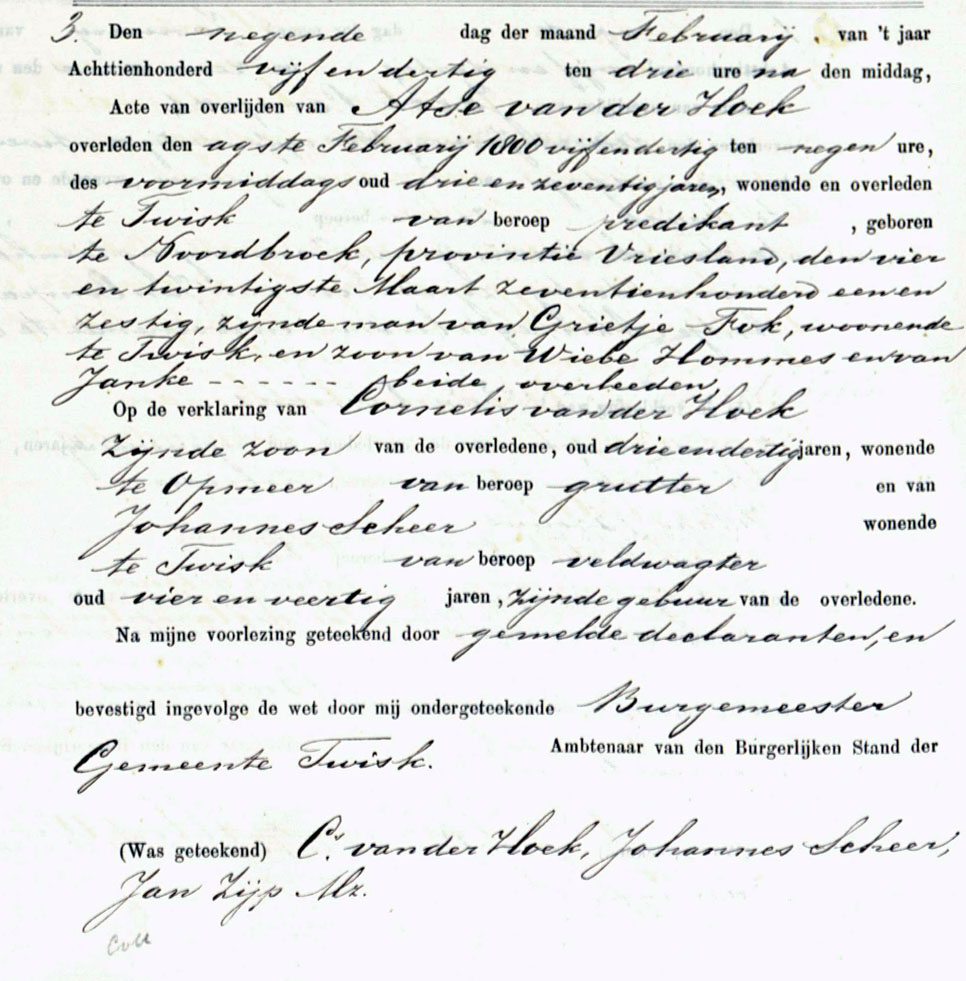 3. Den negende dag der maand Februarij. van 't jaar
Achttienhonderd vijf en dertig ten drie ure na den middag,
Acte van overlijden van Atse van der Hoek
overleden den agste Februarij 1800 vijfendertig ten negen ure,
des voormiddags oud drie en zeventig jaren, wonende en overleden
te Twisk van beroep predikant, geboren
te Noordbroek, provintie Vriesland, den vier
en twintigste Maart zeventienhonderd een en
zestig, zijnde man van Grietje Fok, woonende
te Twisk, en zoon van Wiebe Hommes en van
Janke - - - - - - beide, overleeden,
Op de verklaring van Cornelis van der Hoek
Zijnde zoon van de overledene, oud drie en dertig jaren, wonende
te Opmeer van beroep grutter en van
Johannes Scheer wonende
te Twisk van beroep veldwagter
oud vier en veertig jaren, zijnde gebuur van de overledene.
Na mijne voorlezing geteekend door gemelde declaranten, en
bevestigd ingevolge de wet door mij ondergeteekende Burgemeester
Ambtenaar van den Burgerlijken Stand der
Gemeente Twisk.
(Was geteekend) C. van der Hoek, Johannes Scheer,
Jan Zijp Mz.